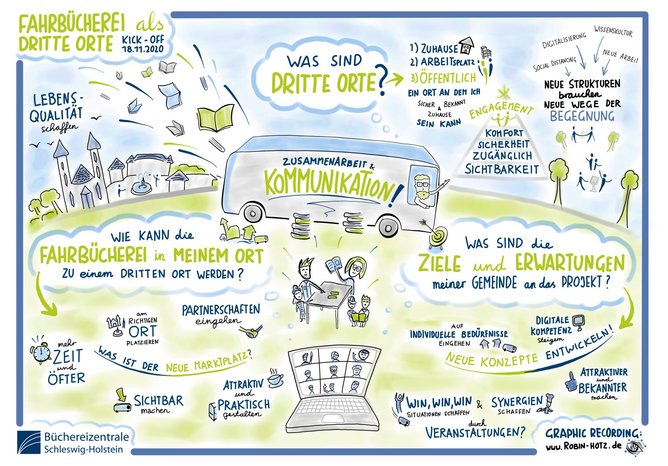 FAHRBÜCHEREI als
DRITTE ORTE KICK-OFF
18.11.2020
LEBENS-
QUALITÄT
schaffen
WAS SIND
DRITTE ORTE?
1) ZUHAUSE
2) ARBEITSPLATZ
3) ÖFFENTLICH
EIN ORT AN DEM ICH
SICHER & BEKANNT
ZUHAUSE
SEIN KANN
ENGAGEMENT
KOMFORT
SICHERHEIT
ZUGÄNGLICH
SICHTBARKEIT
SOCIAL DISTANCING
DIGITALISIERUNG
WISSENSKULTUR
NEUE ARBEIT
NEUE STRUKTUREN
brauchen
NEUE WEGE DER
BEGEGNUNG
ZUSAMMENARBEIT &
KOMMUNIKATION!
WIE KANN die
FAHRBÜCHEREI in MEINEM ORT
ZU EINEM DRITTEN ORT WERDEN?
mehr
ZEIT
und
ÖFTER
am
RICHTIGEN
ORT
PLATZIEREN
PARTNERSCHAFTEN
eingehen
WAS IST DER NEUE MARKTPLATZ?
SICHTBAR
machen
ATTRAKTIV
und
PRAKTISCH
gestalten
WAS SIND die
ZIELE und ERWARTUNGEN
meiner GEMEINDE an das PROJEKT?
AUF
INDIVIDUELLE BEDÜRFNISSE
EINGEHEN
DIGITALE
KOMPETENZ
steigern
NEUE KONZEPTE ENTWICKELN!
ATTRAKTIVER
und
BEKANNTER
machen
WIN, WIN, WIN
SITUATIONEN SCHAFFEN
&
SYNERGIEN
SCHAFFEN
durch
VERANSTALTUNGEN?
Büchereizentrale
Schleswig-Holstein
GRAPHIC RECORDING:
www.ROBIN-HOTZ.de